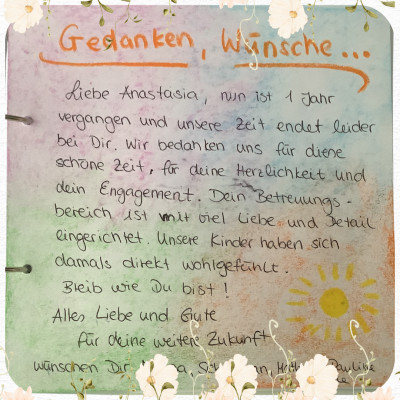 Gedanken, Wünsche...
Liebe Anastasia, nun ist 1 Jahr
vergangen und unsere Zeit endet leider
bei Dir. Wir bedanken uns für diene
schöne Zeit, für deine Herzlichkeit und
dein Engagement. Dein Betreuungs-
bereich ist mit viel Liebe und Detail
eingerichtet. Unsere Kinder haben sich
damals direkt wohlgefühlt.
Bleib wie Du bist!
Alles Liebe und Gute
für deine weitere Zukunft
wünschen Dir Pauline